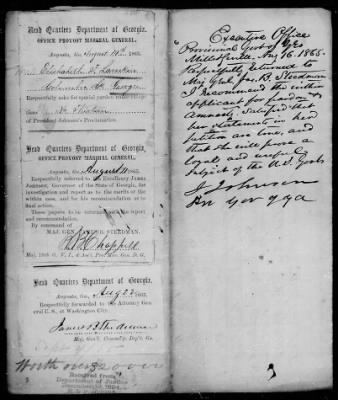 Head Quarters Department of Georgia,
OFFICE PROVOST MARSHAL GENERAL,
Augusta, Ga., August 14th 1865.
Elizabeth
Respectfully asks for special pardon under
of President Johnson's Proclamation.
Head Quarters Department of Georgia,
OFFICE PROVOST MARSHAL GENERAL,
Augusta, Ga., August 1865.
Respectfully referred to His Excellency James
Johnson, Governor of the State of Georgia, for
investigation and report as to the merits of the
within case, and for his recommendation as to
final action.
These papers to be returned with the report
and recommendation.
By command of
MAJ. GEN. STEEDMAN.
Head Quarters Department of Georgia,
Augusta, Ga., Aug 22 1865.
Respectfully forwarded to the Attorney Gen-
eral U. S., at Washington City.
James B Steedman
Maj. Gen'l Comm'g Dep't Ga.
Worth over 20 000
Received from
Department of Justice
Executive Office
Provisional Govt of Ga
Milledgeville, Aug 16. 1865.
Respectfully returned to
Maj Genl. Jas. B. Steedman
I recommend the within
applicant for pardon &
Amnesty. Satisfied that
her statements in her
petition are true, and
that she will prove a
loyal and useful
subject of the U.S. Govt
J Johnson
Pro Gov of Ga